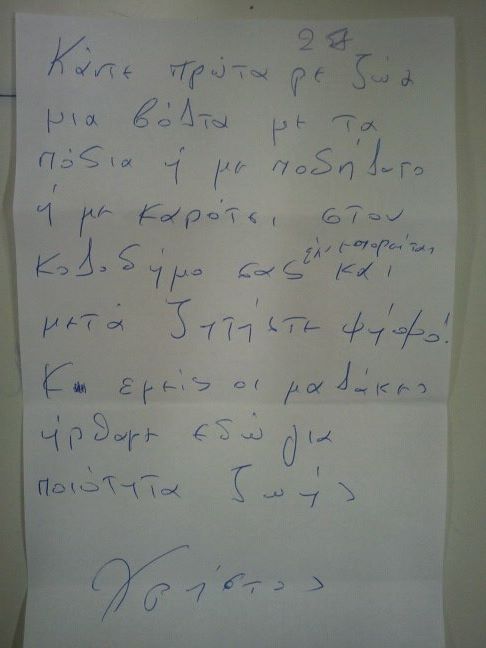 Κάντε πρώτα ρε ζώα
μια βόλτα με τα
πόδια ή με ποδήλατο
ή με καρότσι στον
κωλοδήμο σας και
μετά ζητήστε ψήφο!
Κι εμείς οι μαλάκες
ήρθαμε εδώ για
ποιότητα ζωής
Χρήστος